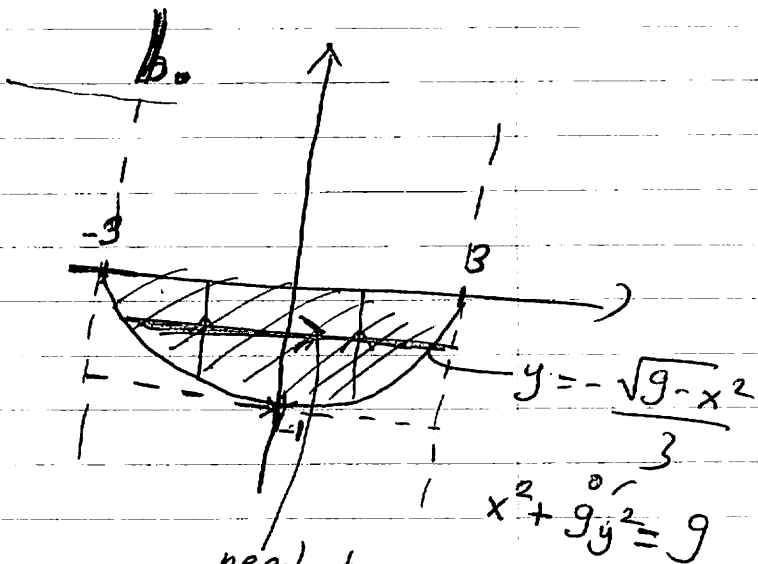 D.
-3
3
-1
y = - √9-x² / 3
or
x² + 9y² = 9